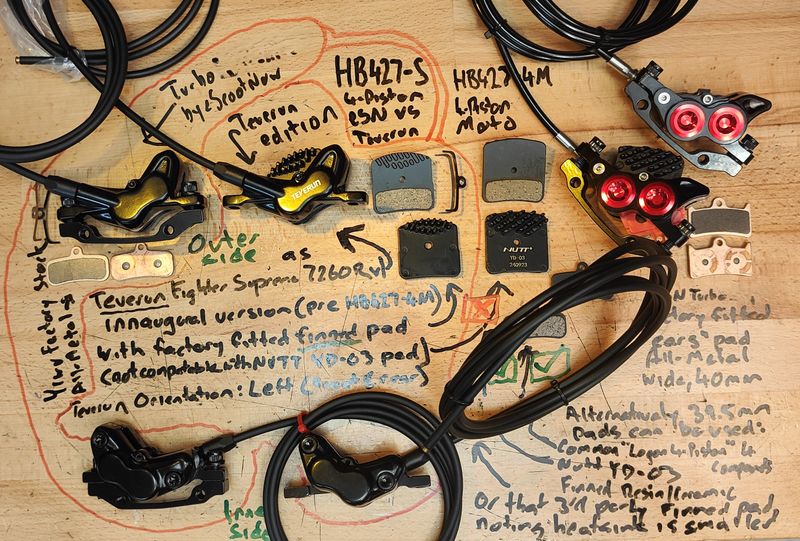 Turbo
by eScootNow
Teverun
edition
HB427-S
4-Piston
ESN VS
Teverun
HB427-4M
4-Piston
Moto
TEVERUN
NUTT
YD-03
Outer
side
as
Teverun Fighter Supreme 7260R
innaugural version (pre HB427-4M)
with factory fitted finned pad
(not compatible with NUTT YD-03 pad)
Teverun Orientation: Left
Factory
All-Metal
Turbo
fitted
pad
All-Metal
wide, 40mm
Alternatively 39.5mm
pads can be used:
Common "Logan 4-Piston" &
Nutt YD-03
Finned Resin/
Or that 3rd party finned pad,
noting heatsink is smaller
side